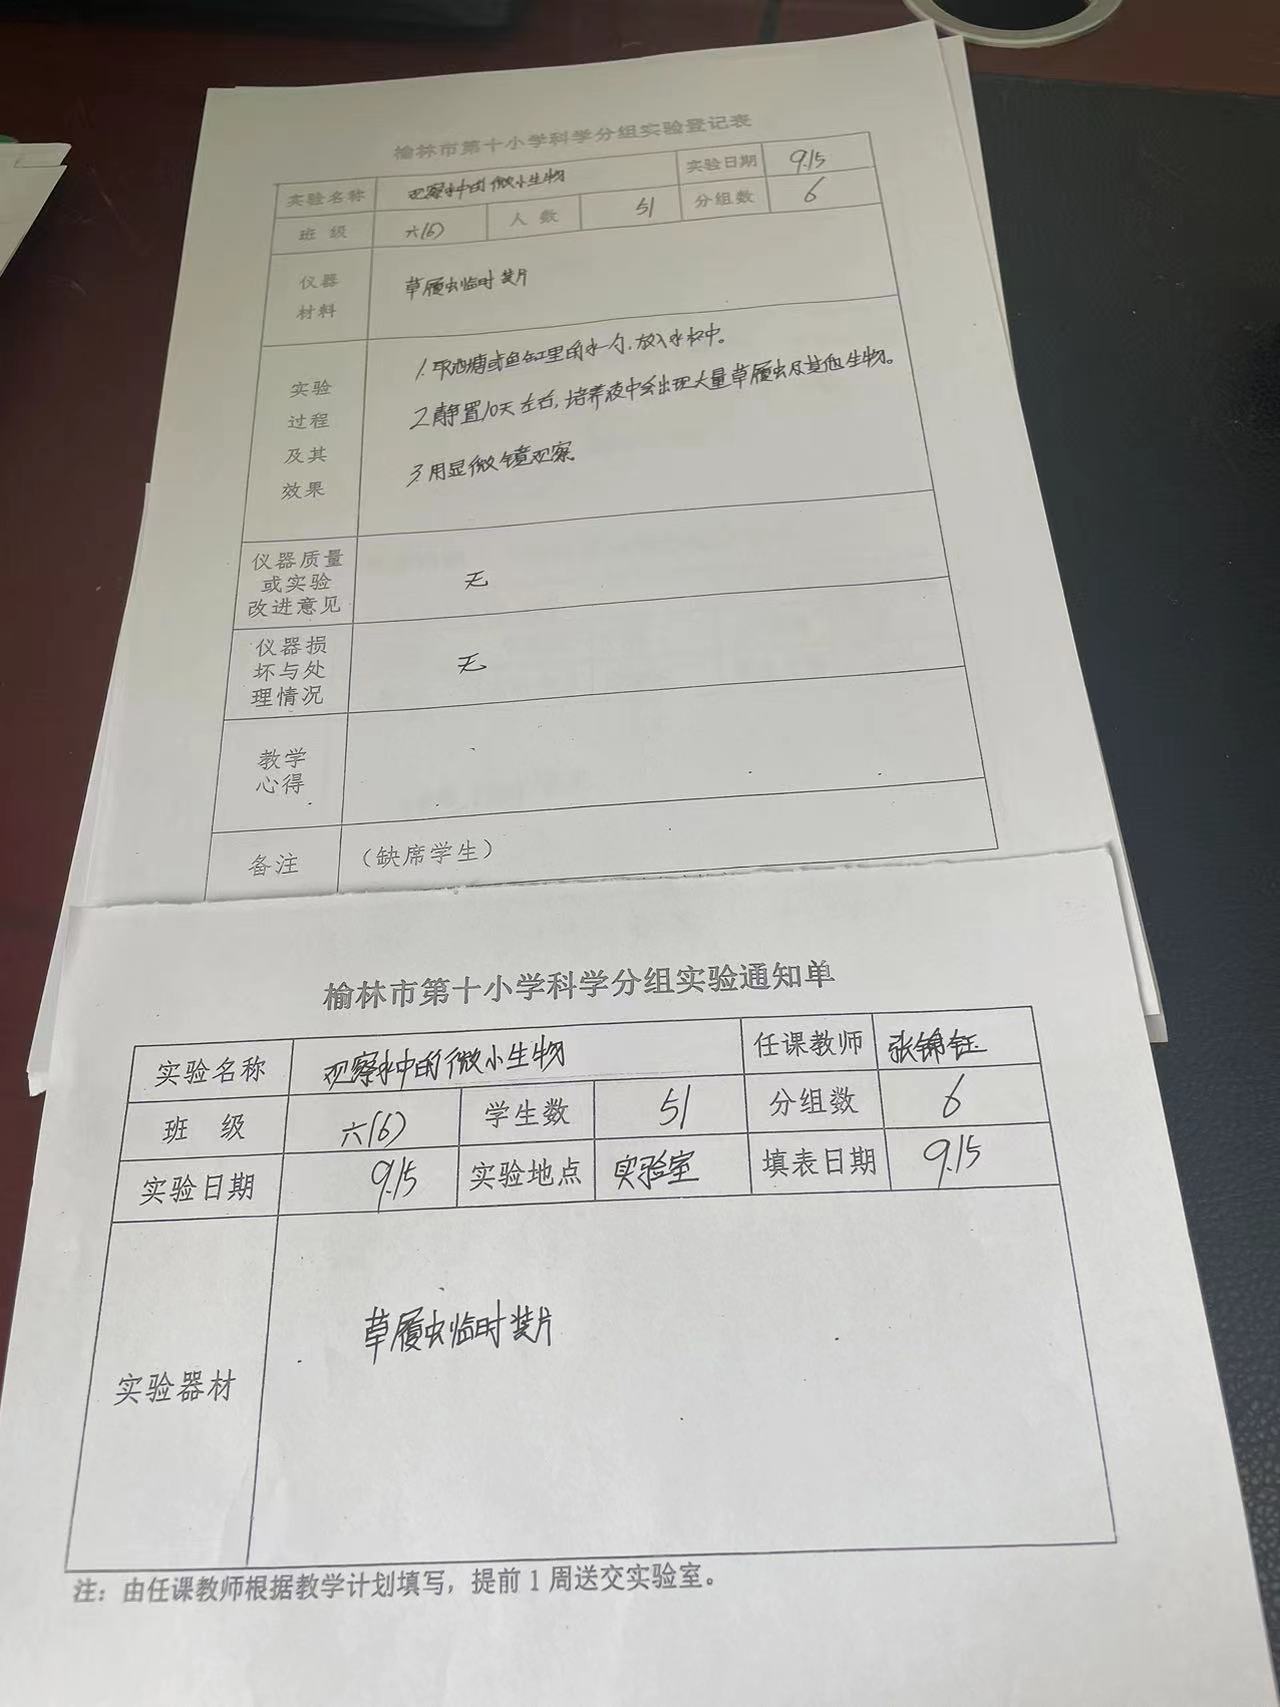 榆林市第十小学科学分组实验登记表
实验名称 观察水中的微小生物 实验日期 9.15
班 级 六(6) 人 数 51 分组数 6
仪器
材料
草履虫临时装片
实验
过程
及其
效果
1.取池塘或鱼缸里的水一勺,放入水杯中。
2.静置10天左右,培养液中会出现大量草履虫及其他生物。
3.用显微镜观察。
仪器质量
或实验
改进意见
无
仪器损
坏与处
理情况
无
教学
心得
备注 (缺席学生)
榆林市第十小学科学分组实验通知单
实验名称 观察水中的微小生物 任课教师 张锦钰
班 级 六(6) 学生数 51 分组数 6
实验日期 9.15 实验地点 实验室 填表日期 9.15
实验器材 草履虫临时装片
注:由任课教师根据教学计划填写,提前1周送交实验室。